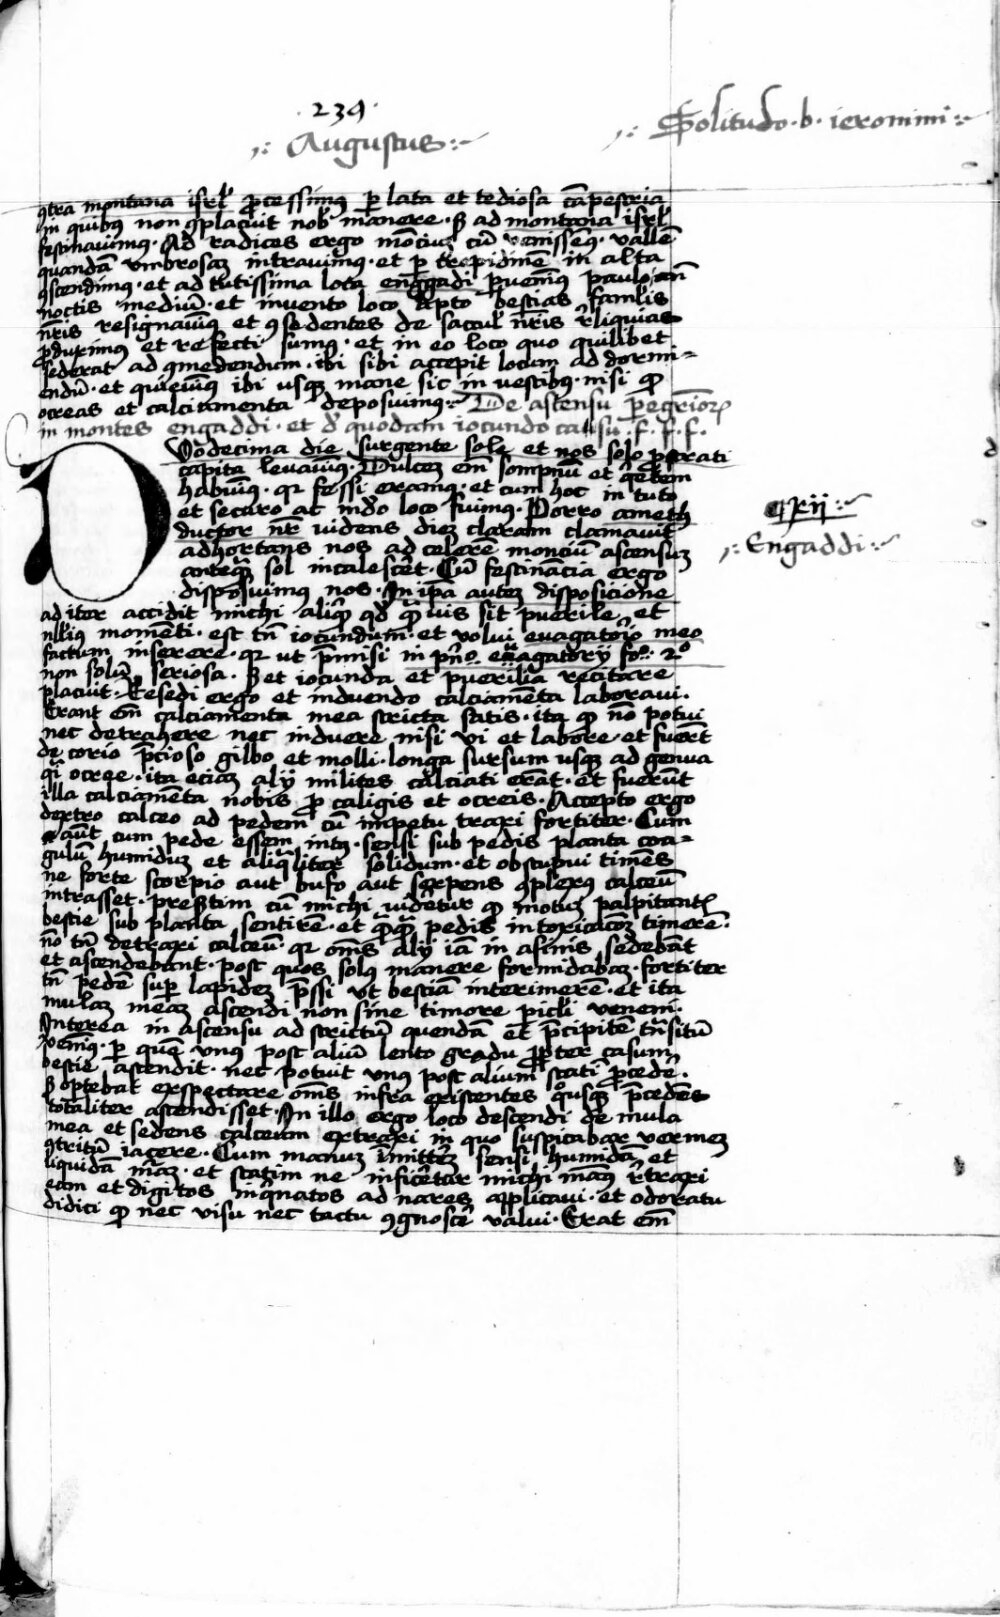 · 239 ·
Augustus
Solitudo · b · ieronimi
ꝯtra montana isrl̄ ꝓcessimꝰ ꝑ lata et tediosa cāpestria
in quibꝰ non ꝯplacuit nob̄ manere · sꝫ ad montana isrl̄
festinauimꝰ · Ad radices ergo mōciū cū venissēꝰ · vallē
quandā vmbrosaꝫ intrauimꝰ · et ꝑ trepidinē in alta
ꝯscendimꝰ · et ad tutissima loca enggadi ꝑuenimꝰ paulo an̄
noctis mediū · et inuento loco apto bestias famlis
nr̄is resignauimꝰ et ꝯsedentes de saccul nr̄is rliquias
ꝓduximꝰ et refecti sumꝰ · et in eo loco quo quilibet
sederat ad ꝯmedendum · ibi sibi accepit locum ad dormi-
endū · et quieuimꝰ ibi vsqꝫ mane sic in vestibꝰ · nisi ꝙ
ocreas et calciamenta deposuimꝰ · De ascensu peregrioꝝ
in montes engaddi · et d̄ quodam iocundo casu · f · f · f ·
Duodecima die surgente sole et nos solo ꝓstrati
capita leuauimꝰ · Dulcem em̄ sompnū et qetem
habuimꝰ · qr fessi eramꝰ · et cum hoc in tuto
et securo ac mūdo loco fuimꝰ · Porro ameth
ductor nr̄ videns diem claram clamauit
adhortans nos ad celerē monciū ascensum
anteqꝫ sol incalescet · Cū festinancia ergo
disposuimus nos · In ipa autem disposicione
qxij
Engaddi
ad iter accidit michi aliqd qd qꝫuis sit puerile · et
nllius momēti · est tn̄ iocundum · et volui euagatorio meo
factum inserere · qr ut pmisi in pno euagatorij fo · 2°
non solū seriosa · sꝫ et iocunda et puerilia recitare
placuit · Resedi ergo et induendo calciamēta laboraui ·
Erant em̄ calciamenta mea stricta satis · ita ꝙ nō potui
nec detrahere nec induere nisi vi et labore · et fuert
de corio pcioso gilbo et molli · longa sursum vsqꝫ ad genua
qi ocree · ita eciam alij milites calciati erāt · et fuerūt
illa calciamēta nobis ꝓ caligis et ocreis · Accepto ergo
dextro calceo ad pedem cū impetu traxi fortiter · Cum
aut cum pede essem intꝰ · sensi sub pedis planta coa-
gulū humidum et aliqliter solidum · et obstupui timēs
ne forte scorpio aut bufo aut serpens ꝯplexꝰ calceū
intrasset · presertim cū michi videtur ꝙ motum palpitantis
bestie sub planta sentirē · et qꝫqꝫ pedis intoxicacōem timerē ·
nō tn̄ detraxi calceū · qr om̄s alij iā in asinis sedebāt
et ascendebant · post quos solꝰ manere formidabam · fortiter
tn̄ pedē suꝑ lapidem pssi ut bestiā interimere · et ita
mulam meam ascendi non sine timore picli veneni ·
Interea in ascensu ad strictū quendā et pcipitē tnsitū
venimꝰ · ꝑ quē vnus post aliū lento gradu ꝓpter casum
bestie ascendit · nec potuit vnus post alium statī pcedē ·
sꝫ optebat exspectare om̄s infra existentes qusqꝫ pcedēs
totaliter ascendisset · In illo ergo loco descendi de mula
mea et sedens calceum extraxi in quo suspicabar vermem
ꝯtritū iacere · Cum manum immittem sensi humidā et
liquidā mam · et statim ne inficetur michi manꝰ rtraxi
eam et digitos inqnatos ad nares applicaui · et odoratu
didici ꝙ nec visu nec tactu ꝯgnosce valui · Erat em̄